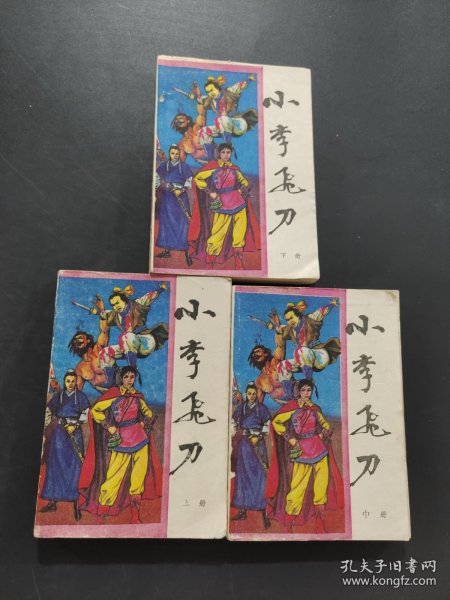 小李飞刀
下册
小李飞刀
上册
小李飞刀
中册
孔夫子旧书网
www.kongfz.com